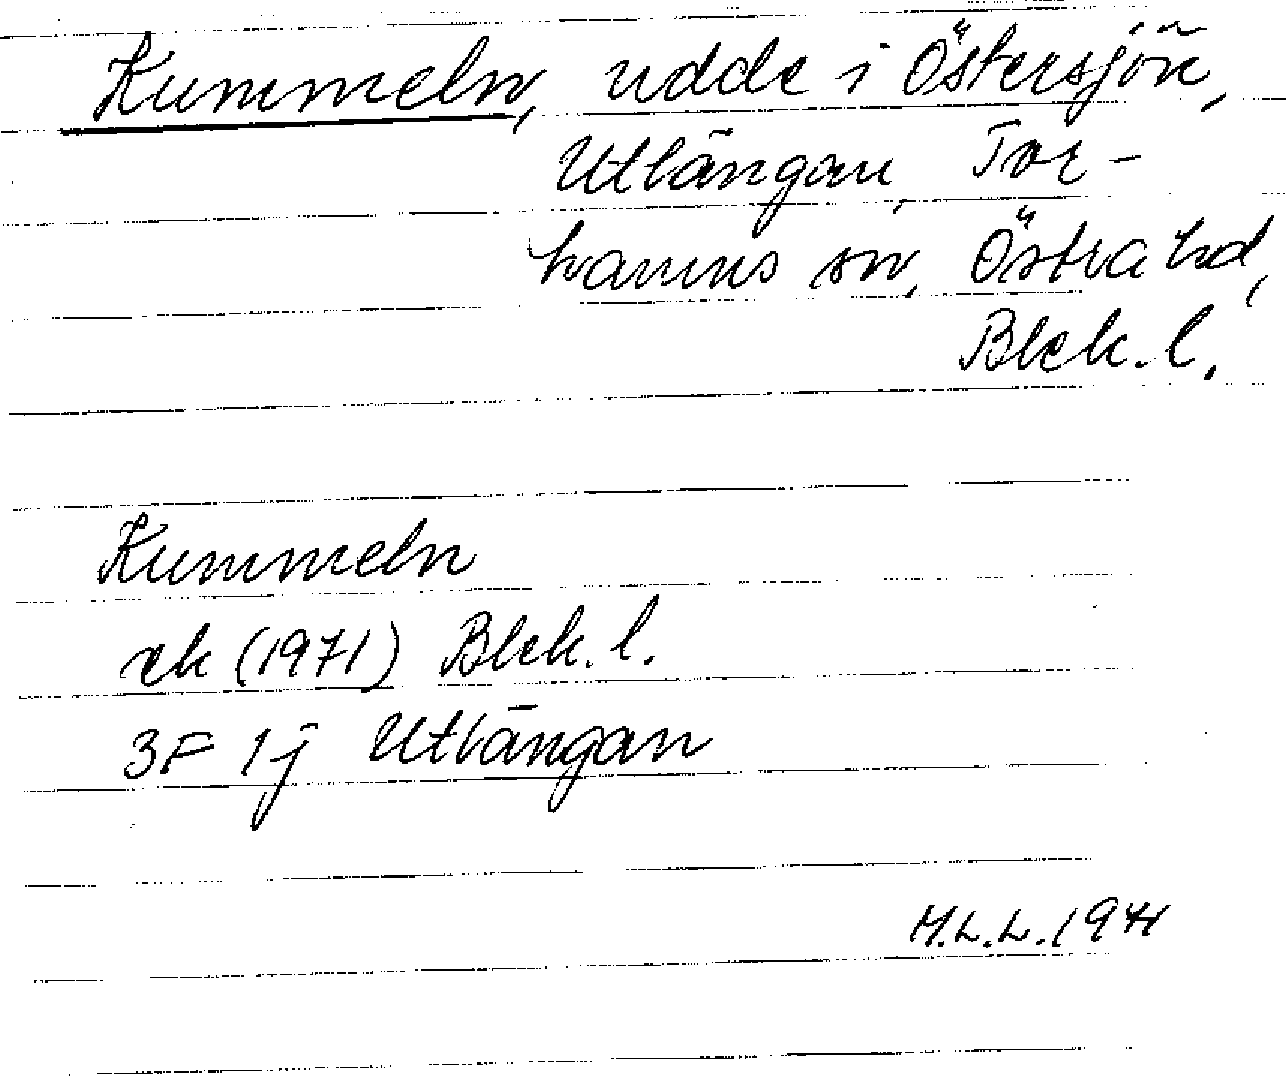 Kummeln, udde i Östersjön,
Utlängan, Tor-
hamns sn, Östra hd,
Blek. l.
Kummeln
ek (1971) Blek. l.
3F 1j Utlängan
M.L.L. 1971